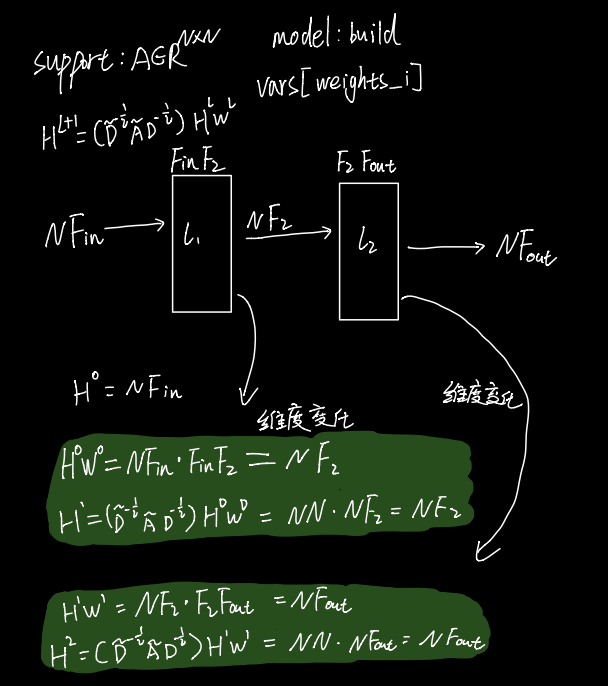 support: A∈R^{N×N}
model: build
vars[weights_i]
H^{L+1}=(D̃^{-1/2}ÃD̃^{-1/2})H^L W^L
FinF2
F2 Fout
NFin
L1
NF2
L2
NFout
H^0=NFin
维度变化
维度变化
H^0W^0=NFin·FinF2=NF2
H^1=(D̃^{-1/2}ÃD^{-1/2})H^0W^0=NN·NF2=NF2
H^1W^1=NF2·F2Fout=NFout
H^2=(D̃^{-1/2}ÃD^{-1/2})H^1W^1=NN·NFout=NFout